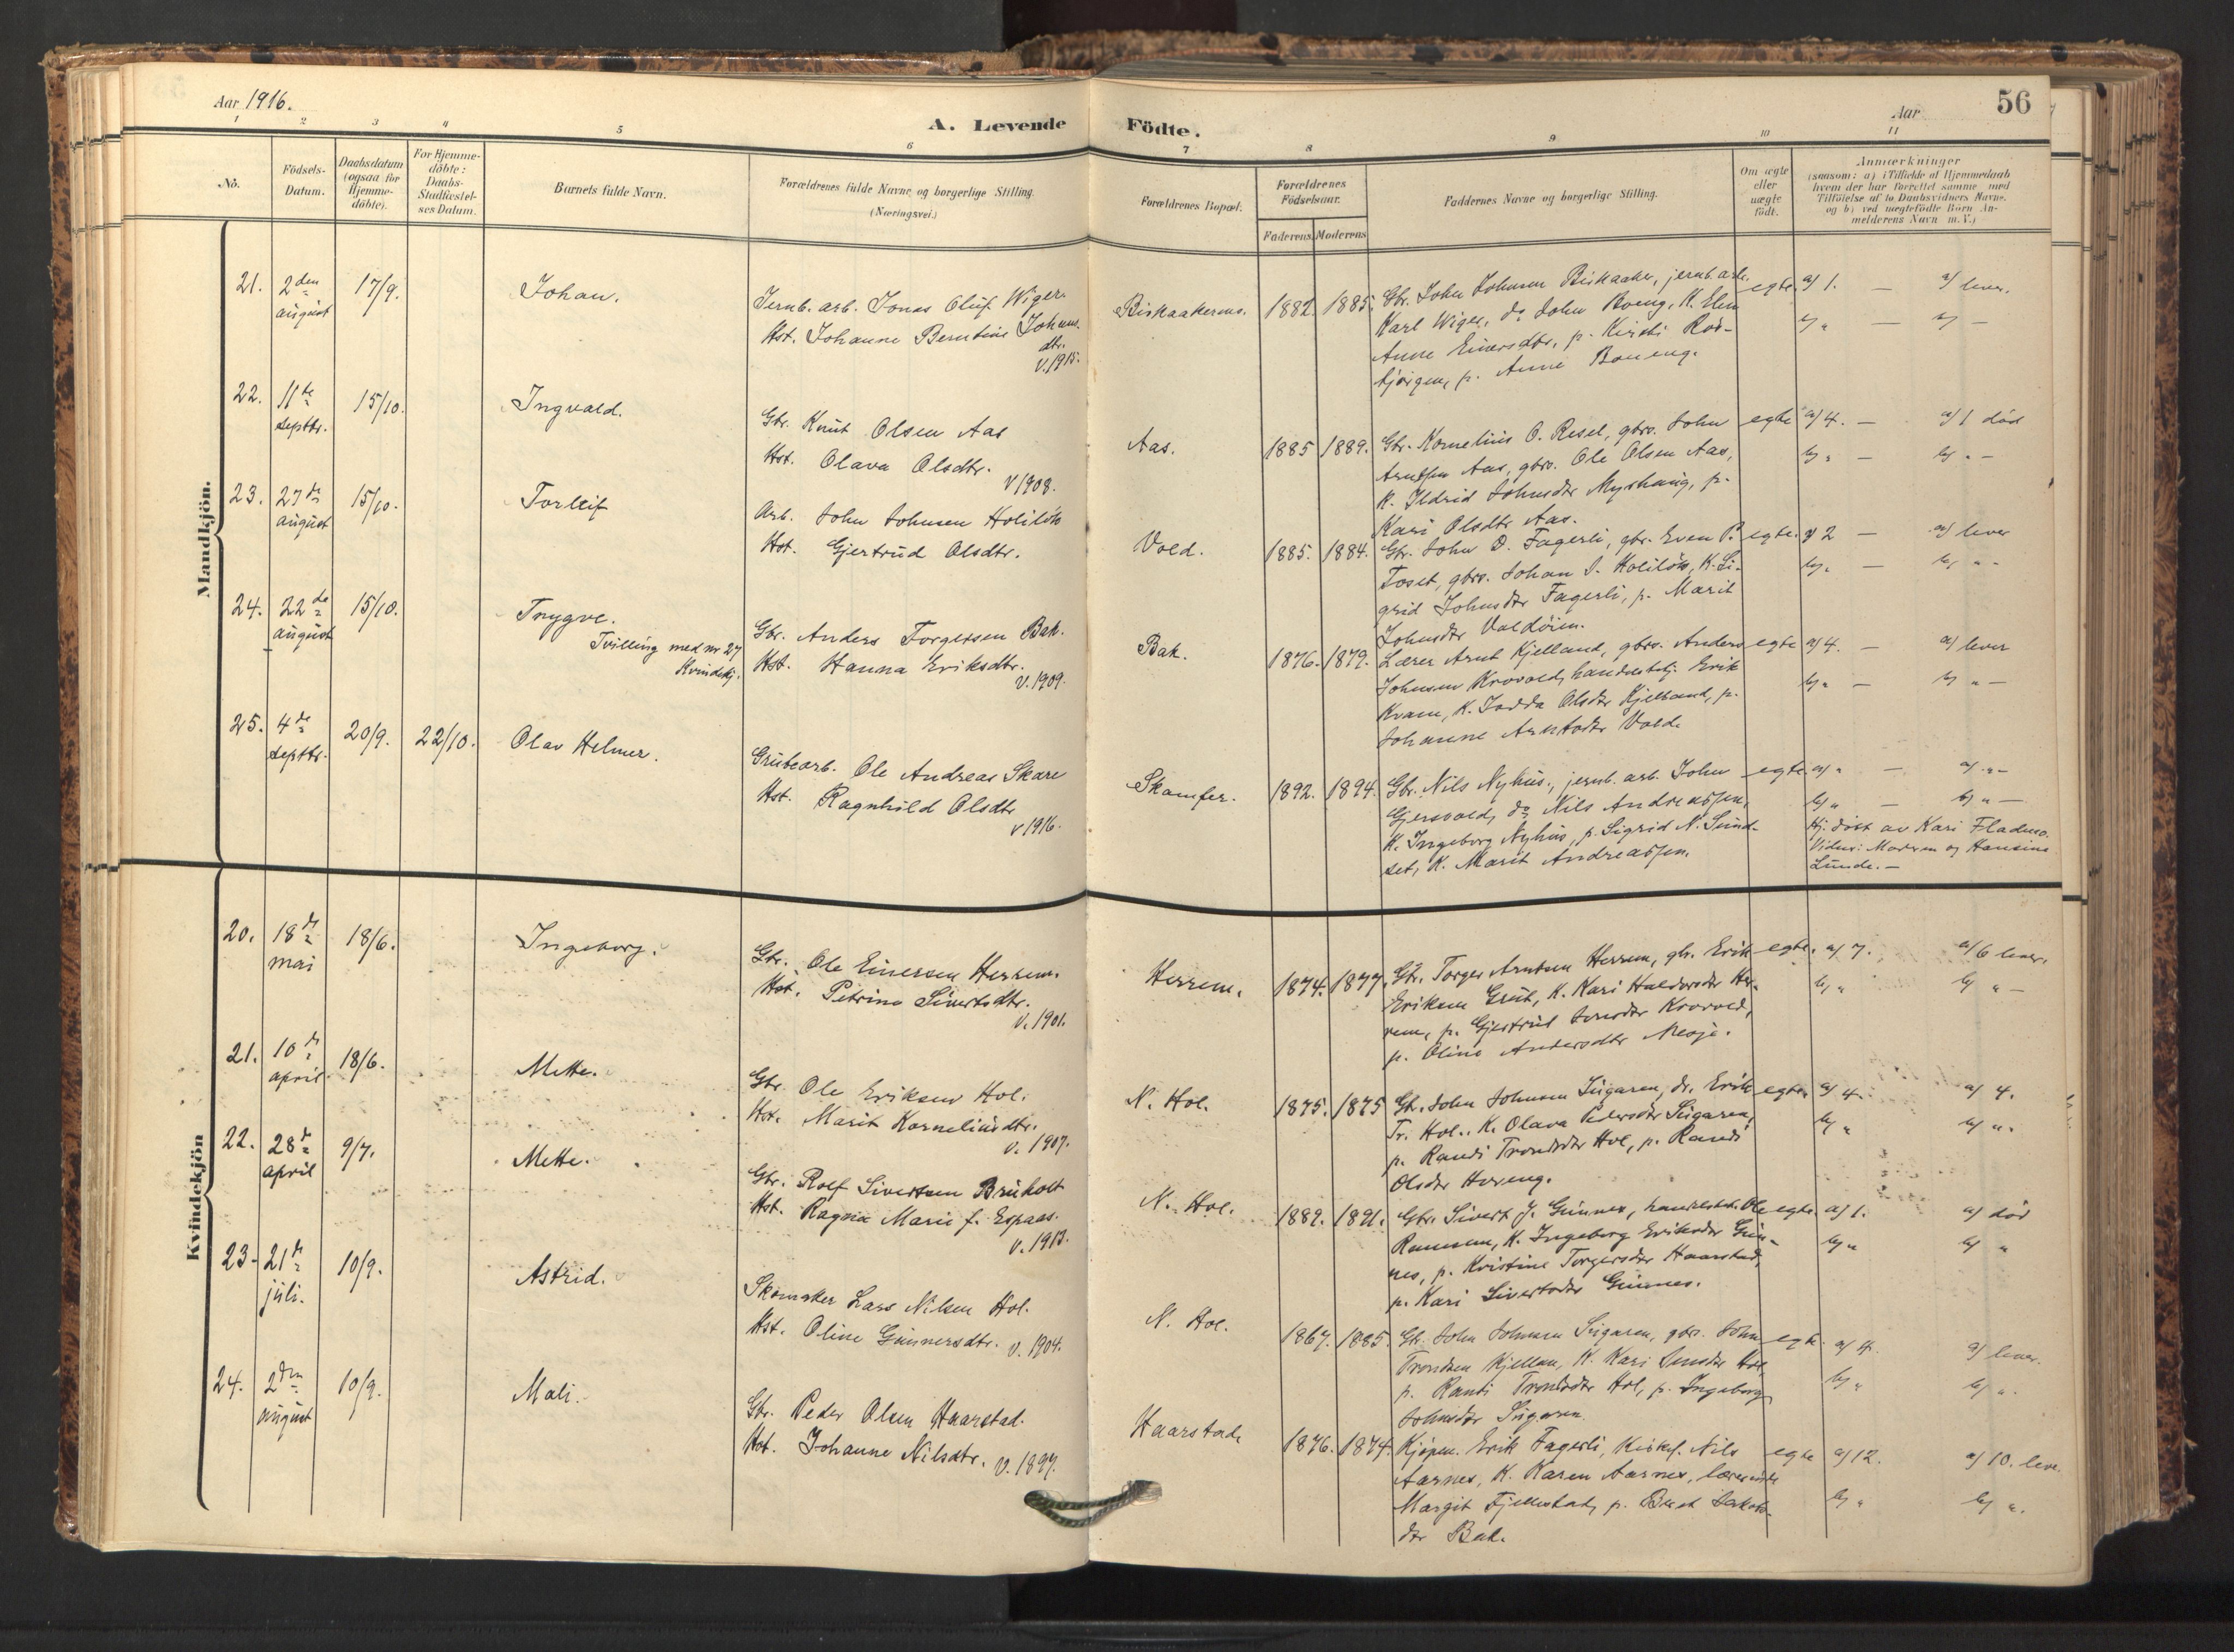 Aar 1916.
A. Levende Födte.
Aar
56
1 2 3 4 5 6 7 8 9 10 11
No.
Födsels-Datum.
Daabsdatum (ogsaa for Hjemmedöbte).
For Hjemmedöbte: Daabs-Stadfæstelses Datum.
Barnets fulde Navn.
Forældrenes fulde Navne og borgerlige Stilling. (Næringsvei.)
Forældrenes Bopæl.
Forældrenes Födselsaar.
Faderens. Moderens
Faddernes Navne og borgerlige Stilling.
Om ægte eller uægte födt.
Anmærkninger
(saasom: a) i Tilfælde af Hjemmedaab
hvem der har forrettet samme med
Tilföielse af to Daabsvidners Navne,
og b) ved uægtefödte Börn Anmelderens Navn m.V.)
Mandkjön.
21. 2den august 17/9. Johan.
Jernb. arb. Jonas Oluf Wigen
Hst. Johanne Berntine Johns.
dtr.
V. 1915.
1882. 1885.
Gbr. John Johnsen Biskaaker, jernb. arb.
Karl Wigen, do John Boeng, K. Elen
Anne Einersdtr, p. Kirsti
p. Anne Boneng.
egte. a/ 1. — a/ lever.
b/ " — b/ —
22. 11te septbr. 15/10. Ingvald.
Gbr. Knut Olsen Aas
Hst. Olava Olsdtr.
V 1908.
Aas. 1885 1889.
Gbr. Kornelius O. Risel, gbrs. John
Arntsen Aas, gbrs. Ole Olsen Aas,
K. Ildrid Johnsdtr Myrhaug, p.
Kari Olsdtr Aas.
egte a/ 4. — a/ 1 död
b/ " — b/ " —
23. 27de august 15/10. Torleif
Arb. John Johnsen Holilök
Hst. Gjertrud Olsdtr.
Vold. 1885. 1884.
Gbr. John O. Fagerli, gbr. Even P.
Toset, gbrs. Johan J. Holilök, K. Sigrid
Johnsdtr Fagerli, p. Marit
Johnsdtr Voldöien.
egte. a/ 2 — a/ lever
b/ " — b/ " -
24. 22de august 15/10. Trygve.
Tvilling med nr 27
Kvindekj.
Gbr. Anders Torgersen Bak.
Hst. Hanna Eriksdtr.
V. 1909.
Bak. 1876. 1879.
Lærer Arnt Kjelland, gbrs. Anders
Johnsen Krovold, handelsbetj. Erik
Kvam, K. Olsdtr Kjelland, p.
Johanne Arntsdtr Volde
egte a/ 4. — a/ lever
b/ " — b/ " —
25. 4de septbr. 20/9. 22/10. Olav Helmer.
Grubearb. Ole Andreas Skare
Hst. Ragnhild Olsdtr
V 1916.
Skamfer. 1892. 1894.
Gbr. Nils Nyhus, jernb. arb. John
Gjersvold, do Nils Andreassen,
K. Ingeborg Nyhus, p. Sigrid N. Sundset,
K. Marit Andreassen.
egte. a/ " — a/ " —
b/ " — b/ " —
Hj. döbt av Kari Fladmo.
Vidner: Moderen og Hansine
Lunde. —
Kvindekjön
20. 18de mai 18/6. Ingeborg.
Gbr. Ole Einersen Herrem.
Hst. Petrine Sivertsdtr.
V. 1901.
Herrem. 1874. 1877.
Gbr. Torger Arntsen Herrem, gbr. Erik
Eriksen Grut, K. Kari Haldorsdtr Herrem,
p. Gjertrud Jonsdtr Krovold,
p. Oline Andersdtr Mesja.
egte. a/ 7. a/ 6 lever.
b/ " b/ " —
21. 10de april. 18/6. Mette.
Gbr. Ole Eriksen Hol.
Hst. Marit Korneliusdtr.
V. 1907.
N. Hol. 1875. 1875
Gbr. John Johnsen Sugaren, do. Erik
Tr. Hol., K. Olava Pedersdtr Sugaren,
p. Randi Trondsdtr Hol, p. Randi
Olsdtr Hoveng.
egte. a/ 4. a/ 4.
b/ " b/ ".
22. 28de april 9/7. Mette.
Gbr. Rolf Sivertsen Bruholt
Hst. Ragna Marie f. Espaas.
V. 1913.
N. Hol. 1889. 1891.
Gbr. Sivert J. Gunnes, handelsbet. Ole
Ramsem, K. Ingeborg Eriksdtr Gunnes,
p. Kristine Torgersdtr Haarstad,
p. Kari Sivertsdtr Gunnes.
egte. a/ 1. a/ död
b/ " b/ "
23. 21de juli. 10/9. Astrid.
Skomaker Lars Nilsen Hol.
Hst. Oline Gunnersdtr. V. 1904.
N. Hol. 1867. 1885.
Gbr. John Johnsen Sugaren, gbrs. John
Trondsen Kjellan, K. Kari Jensdtr Hol,
p. Randi Trondsdtr Hol, p. Ingeborg
Johnsdtr Sugaren.
egte. a/ 4. a/ lever.
b/ " b/ ".
24. 2den august 10/9. Mali.
Gbr. Peder Olsen Haarstad.
Hst. Johanne Nilsdtr. V. 1897.
Haarstad. 1876. 1874.
Kjöpm. Erik Fagerli, Nils
Aarnes, K. Karen Aarnes, lærerinde
Margit Fjellstad, p. Beret Jakobsdtr
Bak.
egte a/ 12. a/ 10. leve.
b/ " b/ ".